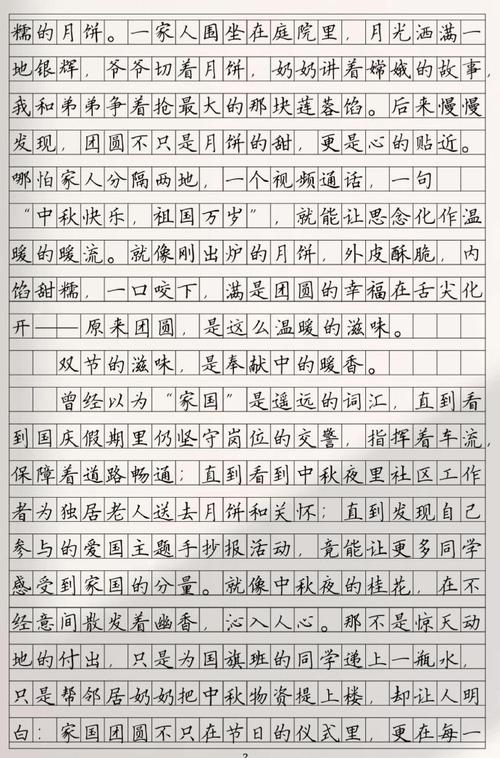 糯的月饼。一家人围坐在庭院里，月光洒满一
地银辉，爷爷切着月饼，奶奶讲着嫦娥的故事，
我和弟弟争着抢最大的那块莲蓉馅。后来慢慢
发现，团圆不只是月饼的甜，更是心的贴近。
哪怕家人分隔两地，一个视频通话，一句
“中秋快乐，祖国万岁”，就能让思念化作温
暖的暖流。就像刚出炉的月饼，外皮酥脆，内
馅甜糯，一口咬下，满是团圆的幸福在舌尖化
开——原来团圆，是这么温暖的滋味。
双节的滋味，是奉献中的暖香。
曾经以为“家国”是遥远的词汇，直到看
到国庆假期里仍坚守岗位的交警，指挥着车流，
保障着道路畅通；直到看到中秋夜里社区工作
者为独居老人送去月饼和关怀；直到发现自己
参与的爱国主题手抄报活动，竟能让更多同学
感受到家国的分量。就像中秋夜的桂花，在不
经意间散发着幽香，沁入人心。那不是惊天动
地的付出，只是为国旗班的同学递上一瓶水，
只是帮邻居奶奶把中秋物资提上楼，却让人明
白：家国团圆不只在节日的仪式里，更在每一
2